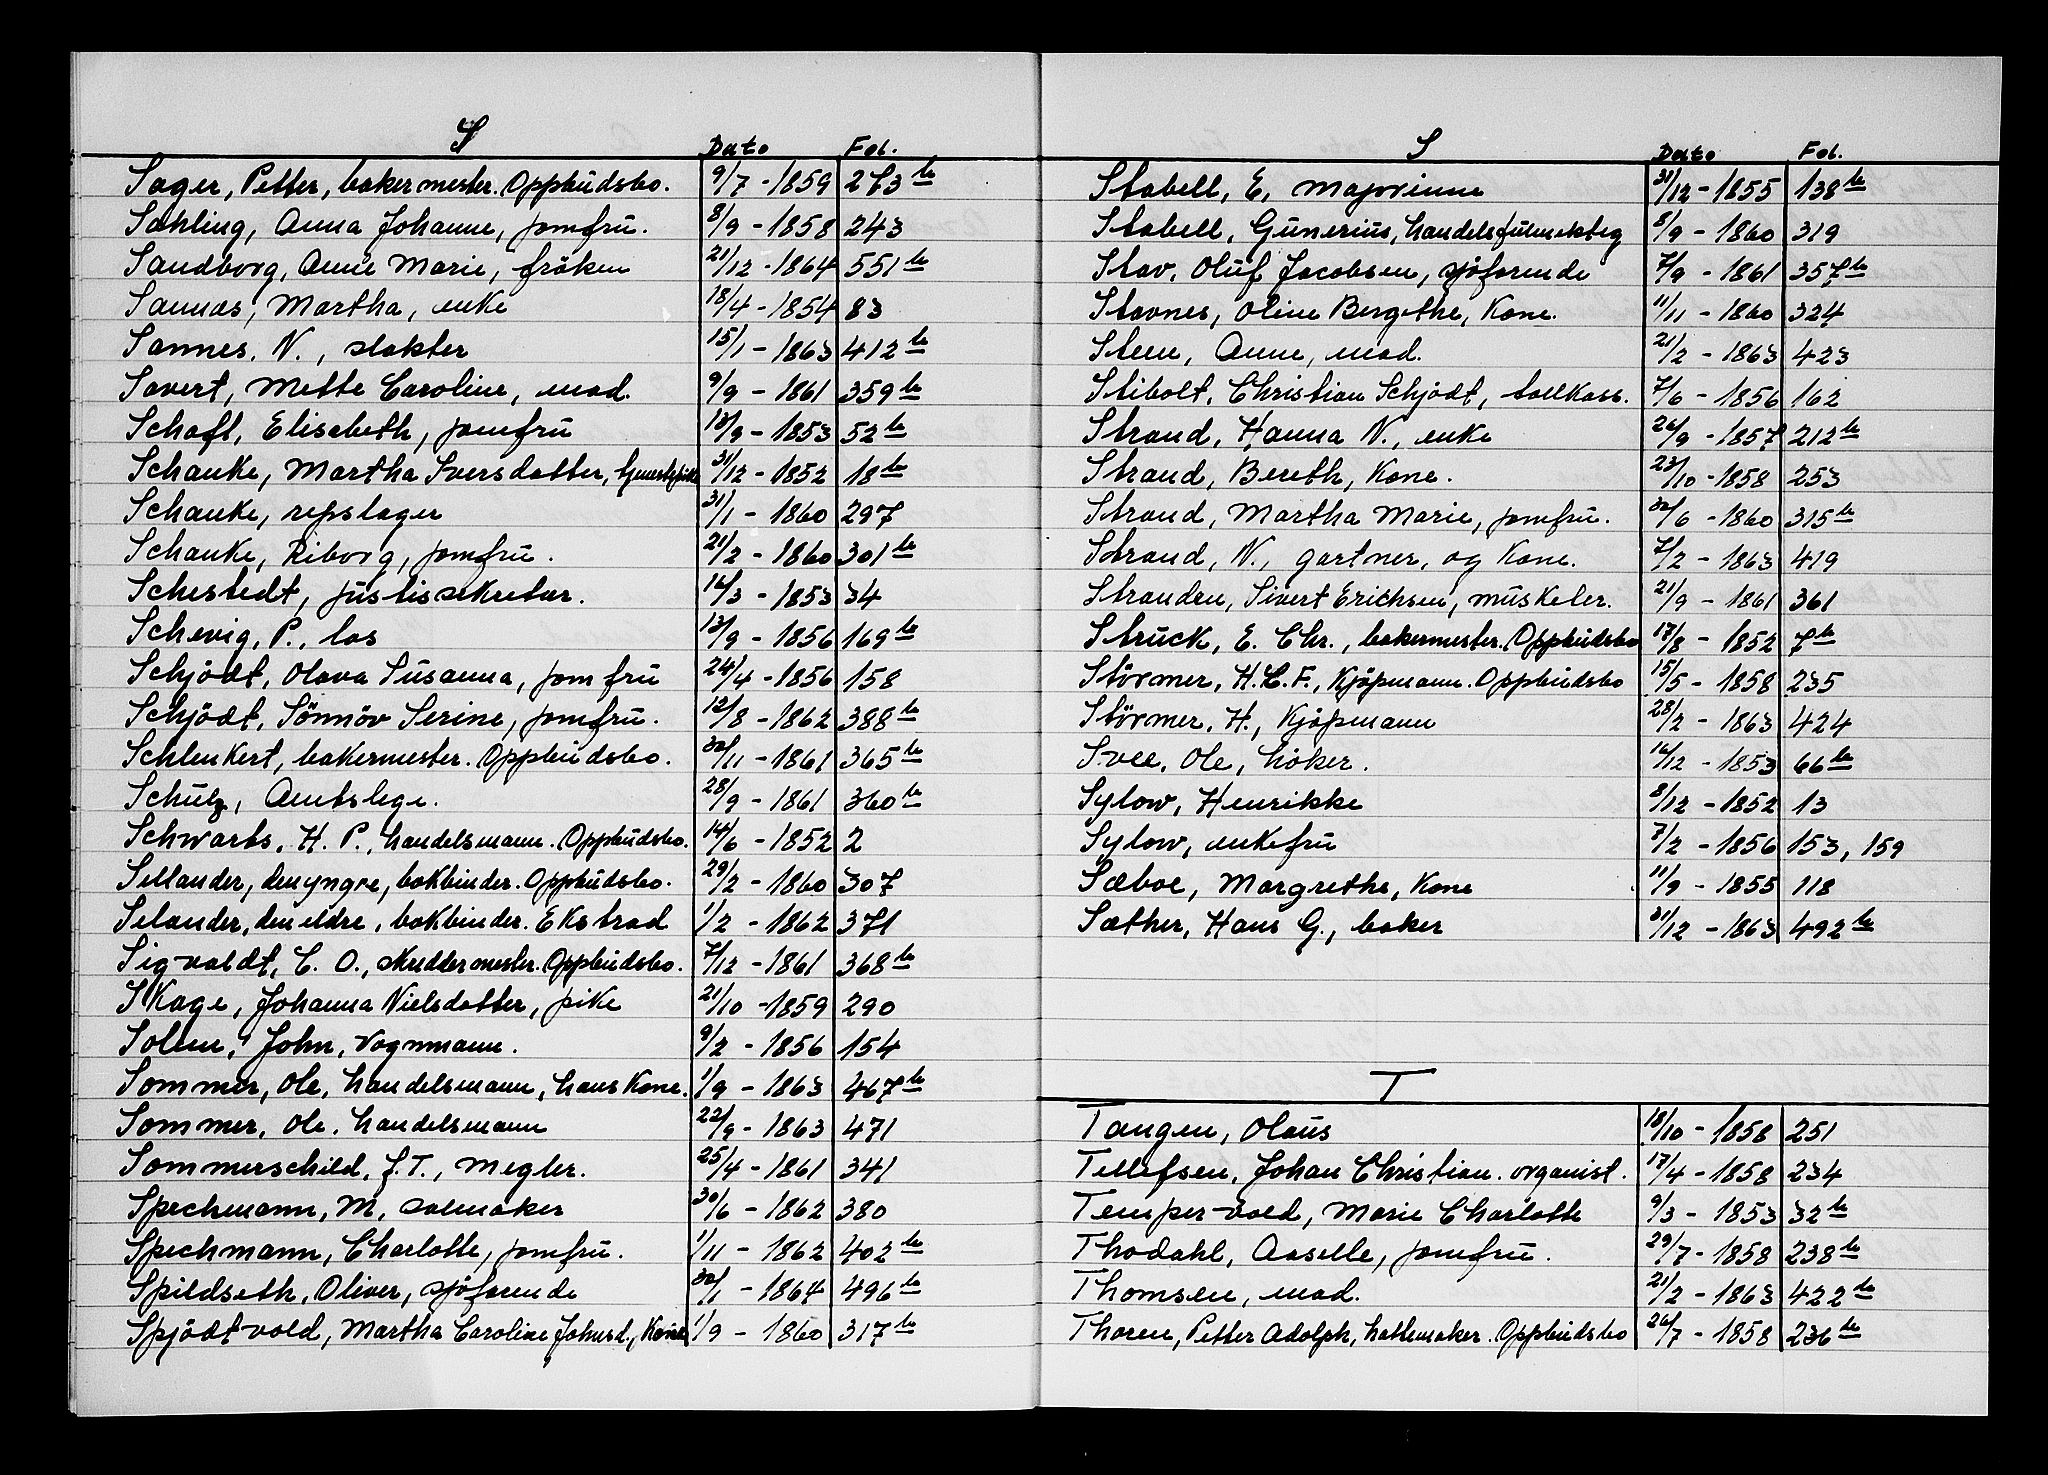 S Dato Fol.
Sager, Petter, bakermester. Oppbudsbo. 9/7 - 1859 273 b
Sahling, Anna Johanne, jomfru. 8/9 - 1858 243
Sandborg, Anne Marie, fröken 21/12 - 1864 551 b
Sannæs, Martha, enke 18/4 - 1854 83
Sannes, N., slakter 15/1 - 1863 412 b
Savert, Mette Caroline, mad. 9/9 - 1861 359 b
Schaft, Elisebeth, jomfru 18/9 - 1853 52 b
Schanke, Martha Iversdatter, tjenestepike 31/12 - 1852 18 b
Schanke, repslager 31/1 - 1860 297
Schanke, Riborg, jomfru. 21/2 - 1860 301 b
Schestedt, justissekretær. 16/3 - 1853 34
Schevig, P., los 13/9 - 1856 169 b
Schjödt, Olava Susanna, jomfru 24/4 - 1856 158
Schjödt, Sönnöv Serine, jomfru. 12/8 - 1862 388 b
Schlenkert, bakermester. Oppbudsbo. 30/11 - 1861 365 b
Schulz, Amtslege. 28/9 - 1861 360 b
Schwarts, H. P., handelsmann. Oppbudsbo. 14/6 - 1852 2
Sellander, den yngre, bokbinder. Oppbudsbo. 29/2 - 1860 307
Selander, den eldre, bokbinder. Ekstrad 1/2 - 1862 371
Sigvaldt, C. O., skreddermester. Oppbudsbo. 7/12 - 1861 368 b
Skage, Johanna Nielsdatter, pike 21/10 - 1859 290
Solem, John, vognmann. 9/2 - 1856 154
Sommer, Ole, handelsmann, hans kone. 1/9 - 1863 467 b
Sommer, Ole. handelsmann 22/9 - 1863 471
Sommerschild, J. T., megler. 25/4 - 1861 341
Spechmann, M, salmaker 30/6 - 1862 380
Spechmann, Charlotte, jomfru. 1/11 - 1862 402 b
Spildseth, Oliver, sjöfarende 30/1 - 1864 496 b
Spjödtvold, Martha Caroline Johnsd., Kone 1/9 - 1860 317 b
S Dato Fol.
Stabell, E, majorinne 31/12 - 1855 138 b
Stabell, Gunerius, handelsfulmektig 8/9 - 1860 319
Stav, Oluf Jacobsen, sjöfarende 7/9 - 1861 357 b
Stavnes, Oline Bergithe, Kone. 11/11 - 1860 324
Steen, Anne, mad. 21/2 - 1863 423
Stibolt, Christian Schjödt, tollkass. 7/6 - 1856 162
Strand, Hanna N., enke 26/9 - 1857 212 b
Strand, Bereth, Kone. 23/10 - 1858 253
Strand, Martha Marie, jomfru. 30/6 - 1860 315 b
Strand, N., gartner, og Kone. 7/2 - 1863 419
Stranden, Sivert Erichsen, muskeler. 21/9 - 1861 361
Struck, E. Chr., bakermester. Oppbudsbo 17/8 - 1852 7 b
Störmer, H. C. F., Kjöpmann. Oppbudsbo 15/5 - 1858 235
Störmer, H., Kjöpmann 28/2 - 1863 424
Svee, Ole, höker. 16/12 - 1853 66 b
Sylow, Henrikke 8/12 - 1852 13
Sylow, enkefru 7/2 - 1856 153, 159
Sæboe, Margrethe, Kone 11/9 - 1855 118
Sæther, Hans G., baker 31/12 - 1863 492 b
T
Tangen, Olaus 18/10 - 1858 251
Tellefsen, Johan Christian. organist. 17/4 - 1858 234
Tempervold, Marie Charlotte 9/3 - 1853 32 b
Thodahl, Aaselle, jomfru. 29/7 - 1858 238 b
Thomsen, mad. 21/2 - 1863 422 b
Thoren, Petter Adolph, hattemaker. Oppbudsbo 26/7 - 1858 236 b